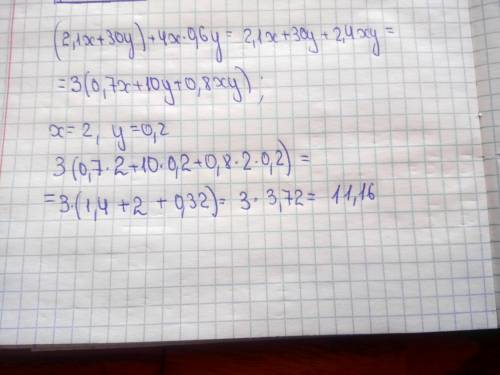 (2,1x+30y)+4x·0,6y= 2,1x+30y+2,4xy=
=3(0,7x+10y+0,8xy);
x=2, y=0,2
3(0,7·2+10·0,2+0,8·2·0,2)=
=3·(1,4+2+0,32)= 3·3,72= 11,16